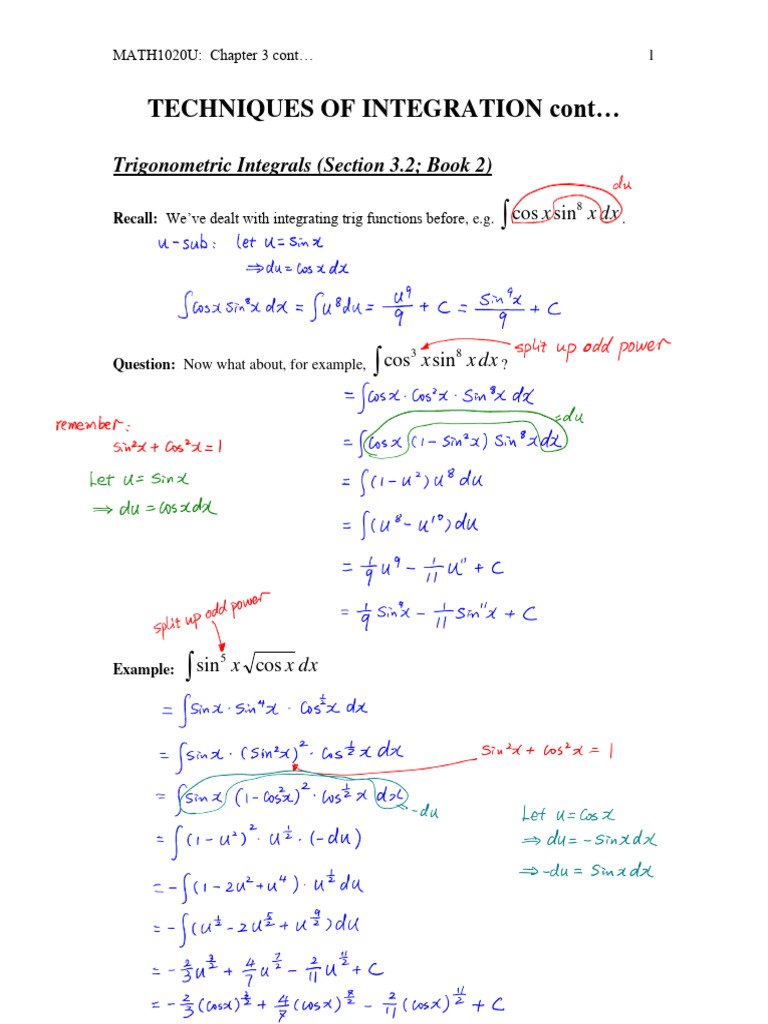 MATH1020U: Chapter 3 cont… 1
TECHNIQUES OF INTEGRATION cont…
Trigonometric Integrals (Section 3.2; Book 2)
du
Recall: We've dealt with integrating trig functions before, e.g. ∫cos x sin⁸ x dx.
u-sub: let u = sin x
⇒ du = cos x dx
∫cos x sin⁸x dx = ∫u⁸ du = u⁹/9 + C = sin⁹x/9 + C
Question: Now what about, for example, ∫cos³ x sin⁸ x dx? split up odd power
= ∫cos x · cos²x · sin⁸x dx
= du
remember:
= ∫cos x (1 - sin²x) sin⁸x dx
sin²x + cos²x = 1
Let u = sin x
= ∫(1 - u²) u⁸ du
⇒ du = cos x dx
= ∫(u⁸ - u¹⁰) du
= 1/9 u⁹ - 1/11 u¹¹ + C
= 1/9 sin⁹x - 1/11 sin¹¹x + C
split up odd power
Example: ∫sin⁵ x √cos x dx
= ∫sin x · sin⁴x · cos^(1/2) x dx
= ∫sin x · (sin²x)² · cos^(1/2) x dx
sin²x + cos²x = 1
= ∫sin x (1 - cos²x)² · cos^(1/2) x dx
-du
Let u = cos x
= ∫(1 - u²)² · u^(1/2) · (-du)
⇒ du = - sin x dx
⇒ -du = sin x dx
= -∫(1 - 2u² + u⁴) · u^(1/2) du
= -∫(u^(1/2) - 2u^(5/2) + u^(9/2)) du
= -2/3 u^(3/2) + 4/7 u^(7/2) - 2/11 u^(11/2) + C